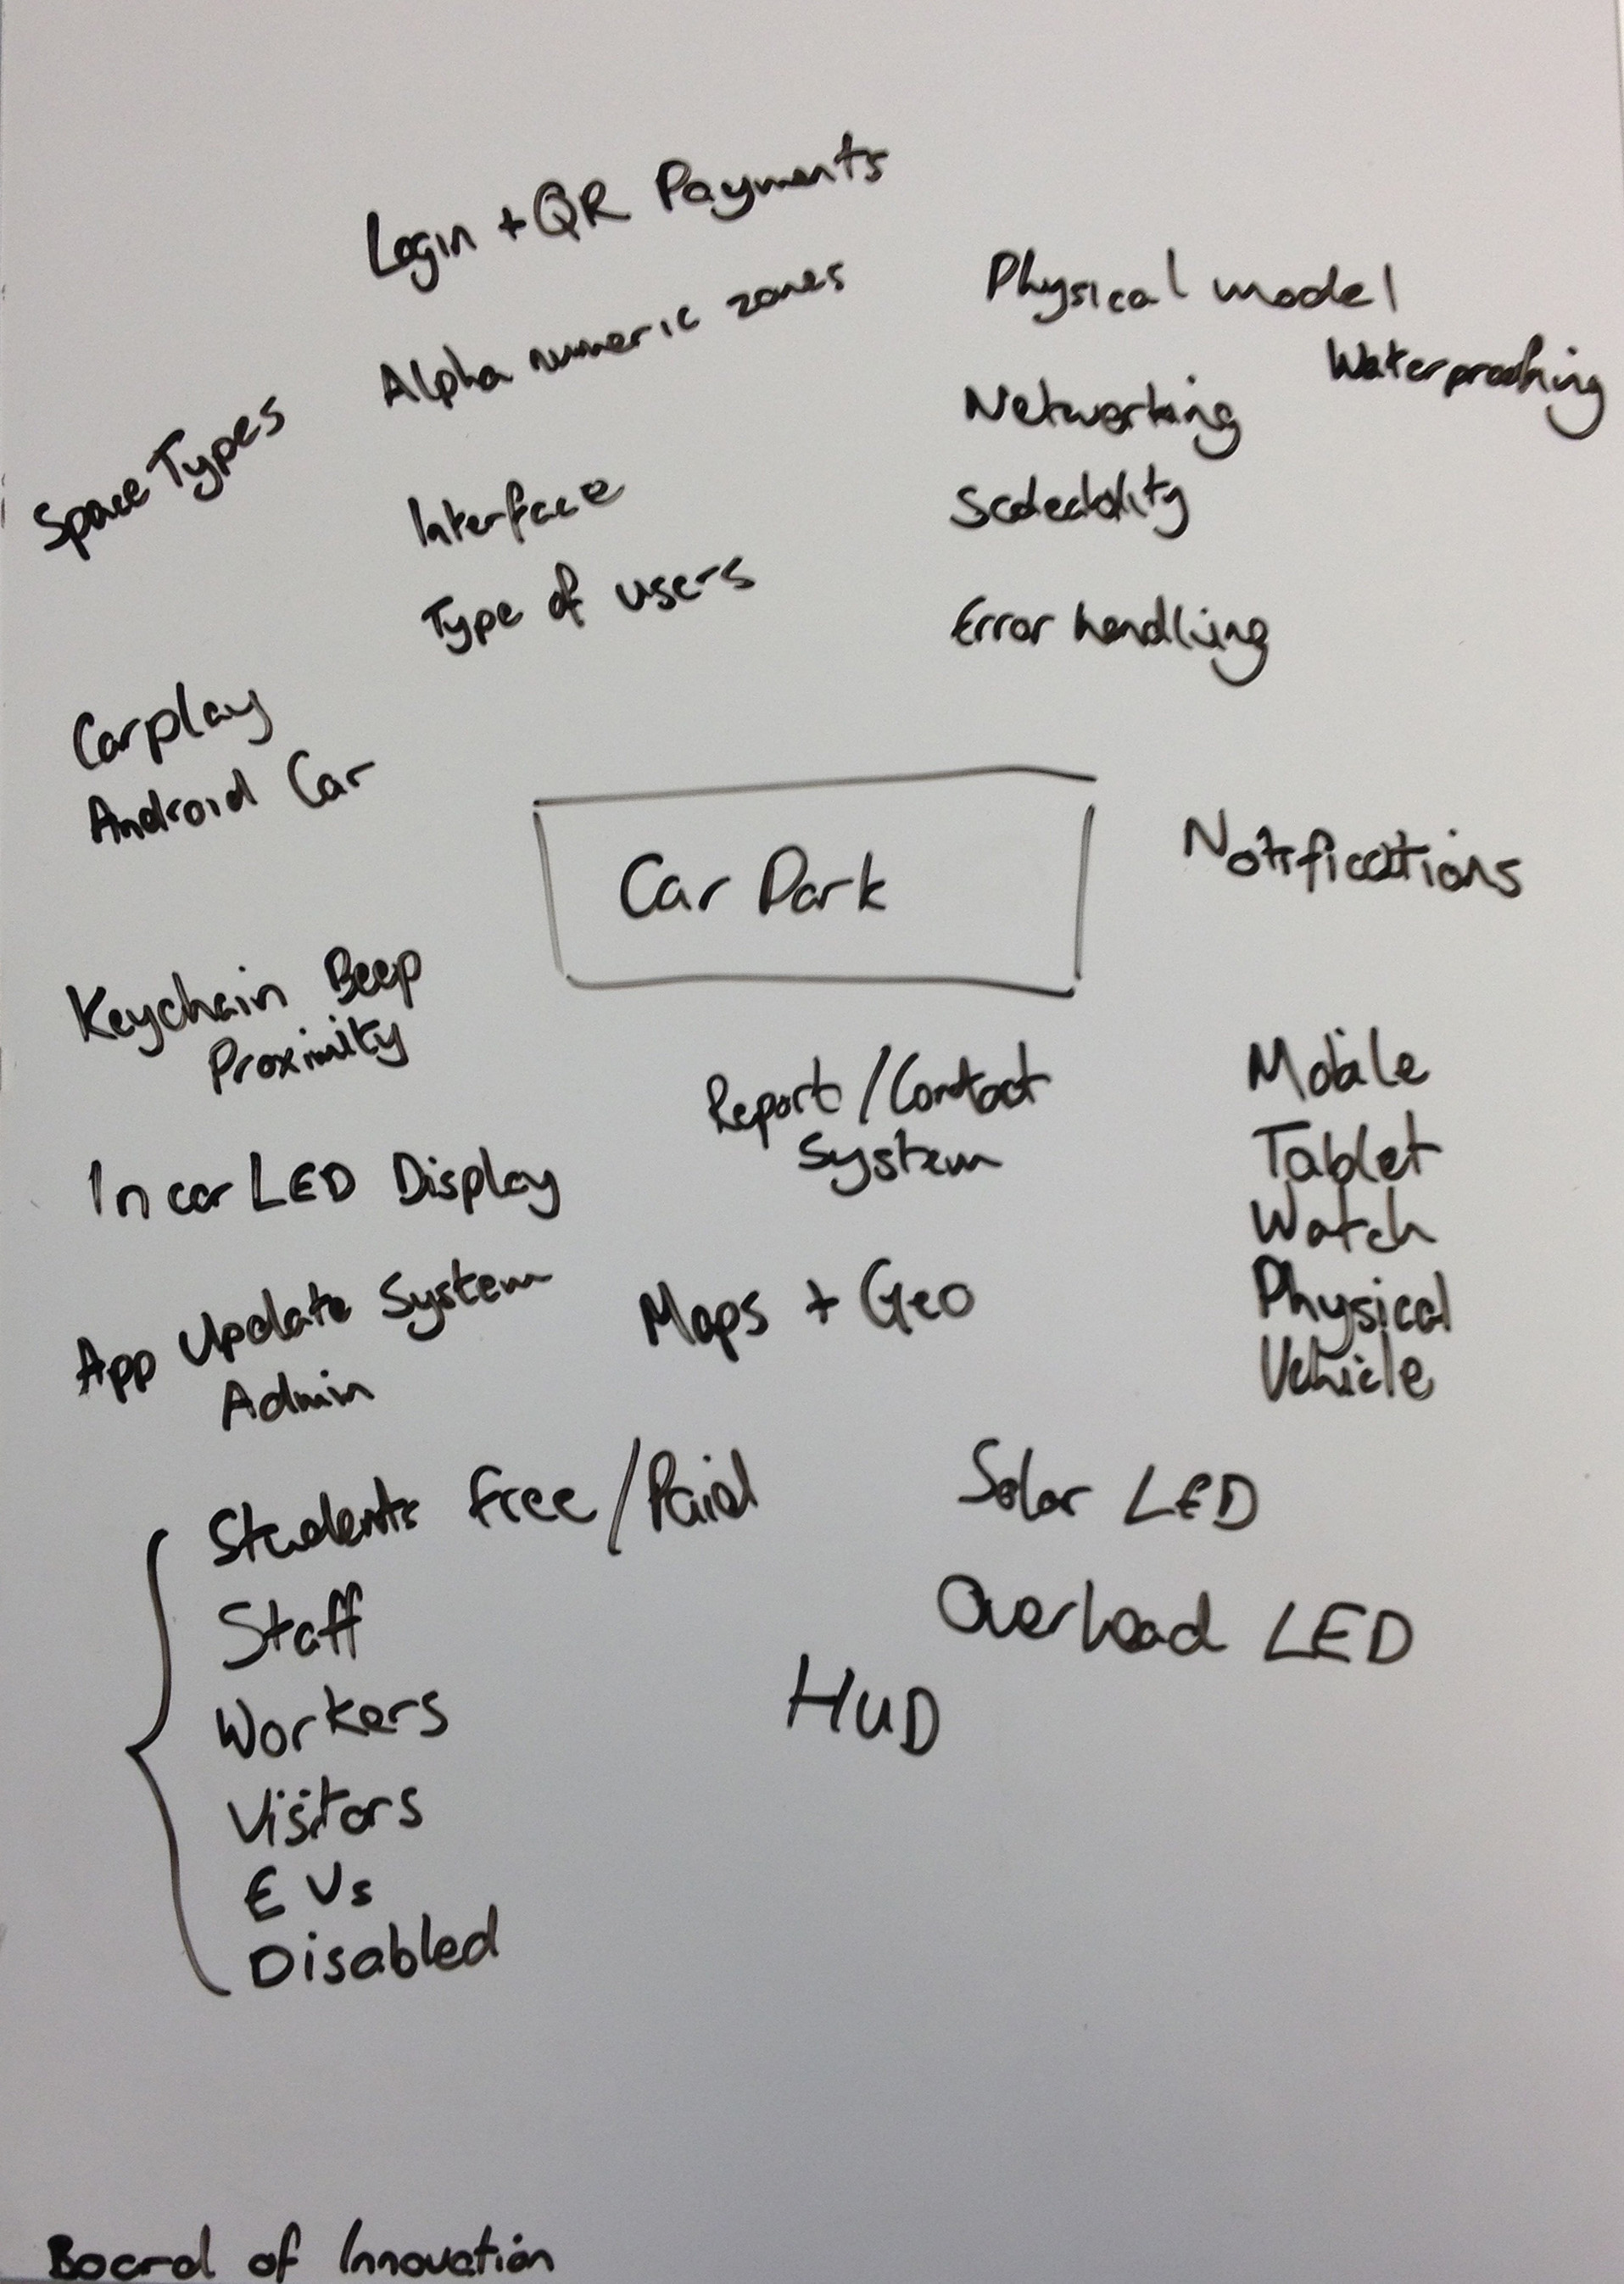 Login + QR Payments
Alpha numeric zones
Physical model
Waterproofing
Networking
Space Types
Interface
Scaleability
Type of users
Error handling
Carplay
Android Car
Car Park
Notifications
Keychain Beep
Proximity
Report/Contact
System
Mobile
Tablet
Watch
Physical
Vehicle
In car LED Display
App Update System
Admin
Maps + Geo
Students free/Paid
Staff
Workers
Visitors
EVs
Disabled
Solar LED
Overhead LED
HUD
Board of Innovation